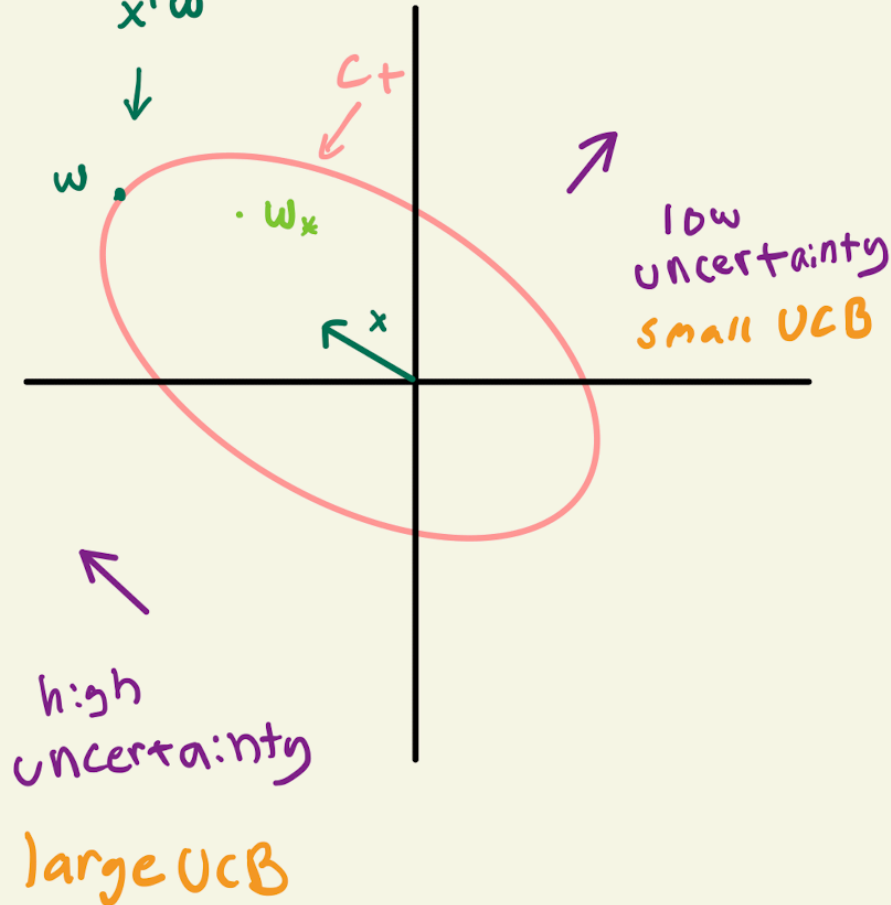 xᵀw
C+
w
w*
x
low
uncertainty
small UCB
high
uncertainty
large UCB